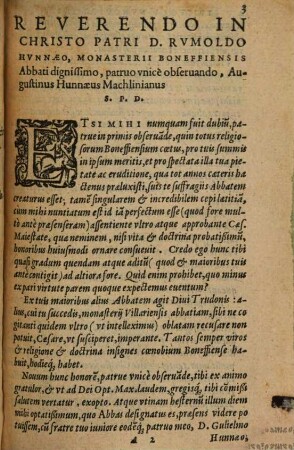 3
REVERENDO IN
CHRISTO PATRI D. RVMOLDO
HVNNÆO, MONASTERII BONEFFIENSIS
Abbati dignissimo, patruo vnicè obseruando, Au-
gustinus Hunnæus Machlinianus
S. P. D.
ETSI MIHI numquam fuit dubiũ, pa-
true in primis obseruãde, quin totus religio-
sorum Boneffiensium cœtus, pro tuis summis
in ipsum meritis, et pro spectata illa tua pie-
tate ac eruditione, qua tot annos cateris ha-
ctenus præluxisti, suis te suffragiis Abbatem
creaturus esset; tamẽ singularem & incredibilem cepi lætitiã,
cum mihi nuntiatum est id iã perfectum esse (quod fore mul-
tò antè præsenseram) assentiente vltro atque approbante Cæs.
Maiestate, qua neminem, nisi vita & doctrina probatissimũ,
honoribus huiusmodi ornare consueuit. Credo ego hunc tibi
quasi gradum quendam atque aditũ (quod & maioribus tuis
antè contigit) ad altiora fore. Quid enim prohibet, quo minus
ex pari virtute parem quoque expectemus euentum?
Ex tuis maioribus alius Abbatem agit Diui Trudonis: a-
lius, cui tu succedis, monasterij Villariensis abbatiam, sibi ne co-
gitanti quidem vltro (vt intelleximus) oblatam recusare non
potuit, Cæsare, vt susciperet, imperante. Tantos semper viros
& religione & doctrina insignes cœnobium Boneffiense ha-
buit, hodieq́, habet.
Nouum hunc honorẽ, patrue vnicè obseruãde, tibi ex animo
gratulor, & vt ad Dei Opt. Max. laudem, gregisq́, tibi cõmissi
salutem vertatur, exopto. Atque vtinam hesternũ illum diem
mihi optatissimum, quo Abbas designatus es, præsens videre po-
tuissem, cũ fratre tuo iuniore eodẽq́, patruo meo, D. Gulielmo
A 2 Hunnæo,